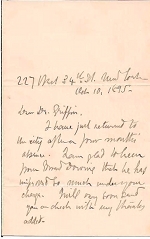 227 West 34th St. New York
Octo. 10, 1895.
Dear Dr. Griffin,
I have just returned to
the city after four months'
absence. I am glad to learn
from that he has
improved so much under your
charge. I will very soon hand
you a check with my thanks
added.